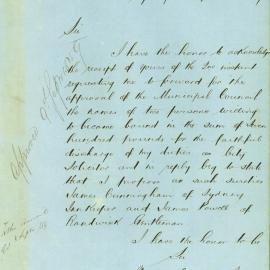 Sir
I have the honor to acknowledge
the receipt of yours of the 2nd instant
requesting me to forward for the
approval of the Municipal Council
the names of two persons willing
to become bound in the sum of
hundred pounds for the faithful
discharge of my duties as City
Solicitor and in reply beg to state
that I propose as such sureties
James Cunningham of Sydney
Innkeeper and James Powell of
Randwick Gentleman
I have the honor to be
Sir
Approved